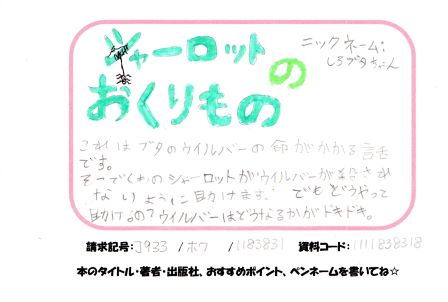 シャーロット
の
おくりもの
ニックネーム:
しろブタちゃん
これは ブタのウイルバーの 命がかかる 話
です。
そこでくものシャーロットがウイルバーが殺され
ないように助けます。 でもどうやって
助ける。の?ウイルバーはどうなるかがドキドキ。
請求記号:J933 /ホワ /1183831 資料コード:1111838318
本のタイトル・著者・出版社、おすすめポイント、ペンネームを書いてね☆